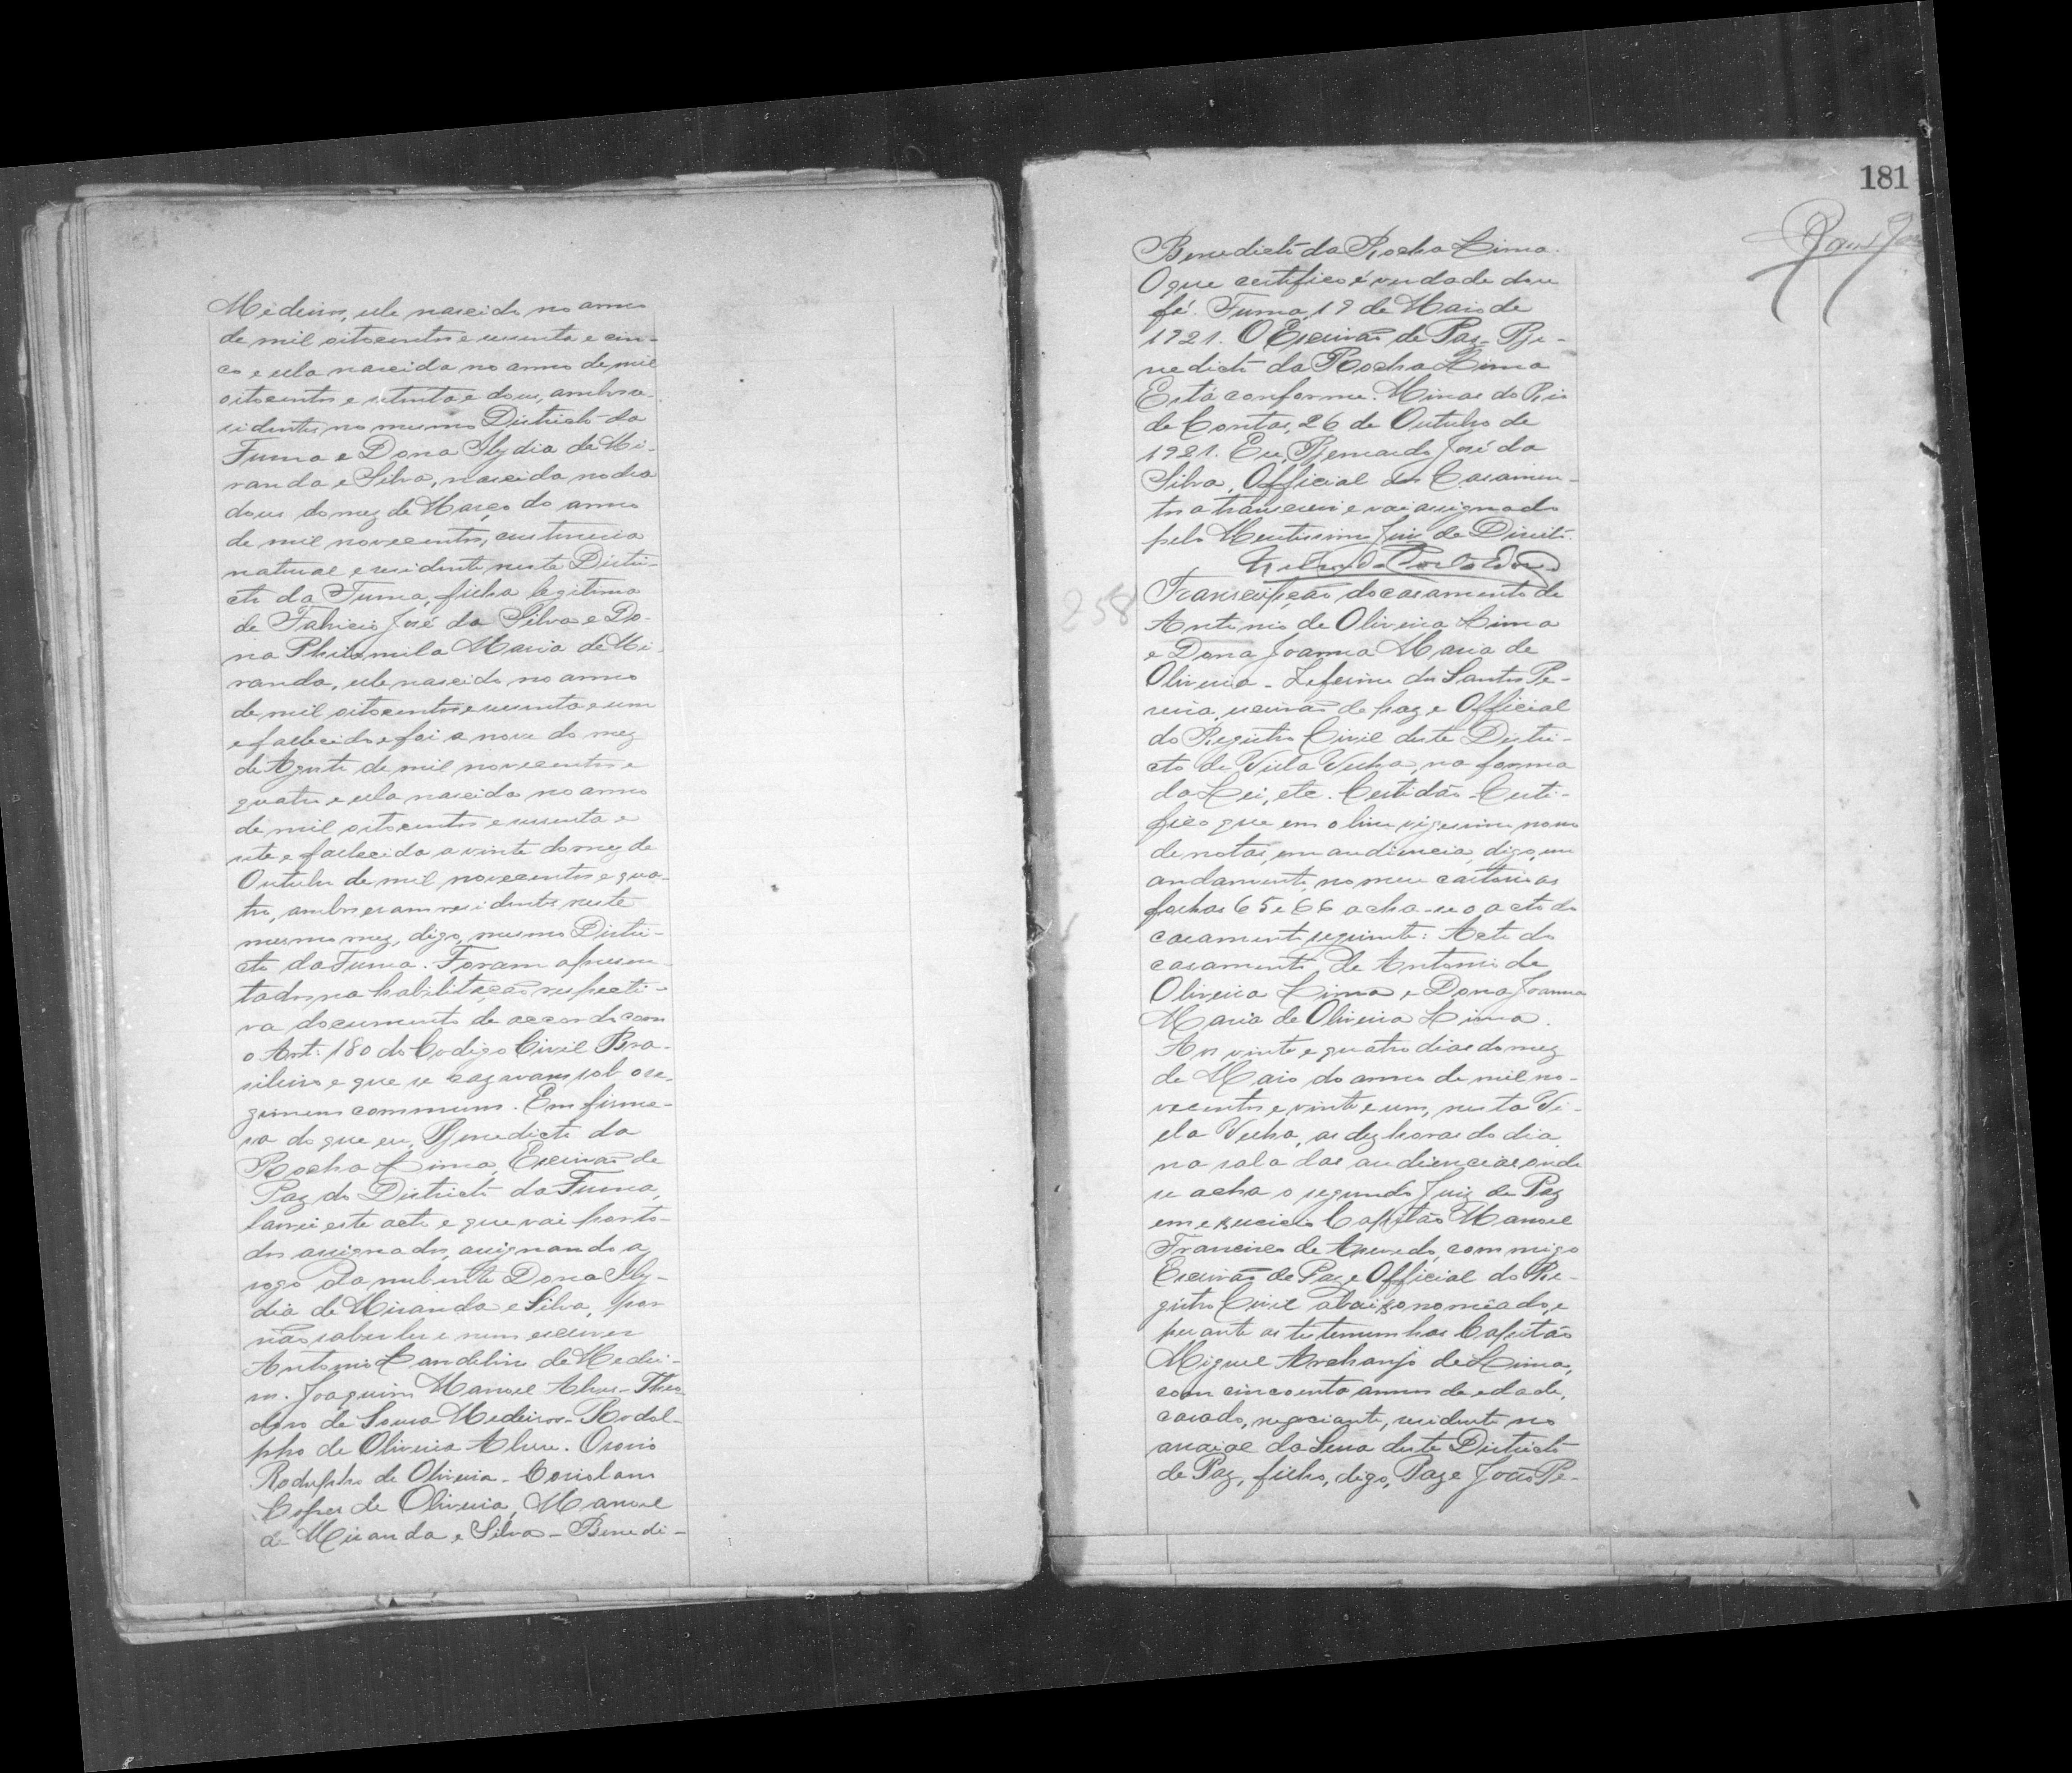 Medeiros, elle nascido no anno
de mil oitocentos e sessenta e cin-
co e ella nascida no anno de mil
oitocentos e setenta e dous, ambos re-
sidentes no mesmo Districto da
Furna e Dona Ilydia de Mi-
randa e Silva, nascida no dia
dous do mez de Março do anno
de mil novecentos,
natural e residente neste Distri-
cto da Furna, filha legitima
de Fabricio José da Silva e Do-
na Philomila Maria de Mi-
randa, elle nascido no anno
de mil oitocentos e sessenta e um
e fallecido e foi a nove do mez
de Agosto de mil novecentos e
quatro e ella nascida no anno
de mil oitocentos e sessenta e
sete e fallecida a vinte do mez de
Outubro de mil novecentos e qua-
tro, ambos eram residentes neste
mesmo mez, digo, mesmo Distri-
cto da Furna. Foram apresen-
tados na habilitação respecti-
va documentos de accordo com
o Art: 180 do Codigo Civil Bra-
sileiro e que se cazavam sob o re-
gimem commum. Em firme-
sa do que eu, Benedicto da
Rocha Lima, Escrivão de
Paz do Districto da Furna,
lavrei este acto e que vai por to-
dos assignados, assignando a
rogo da nubente Dona Ily-
dia de Miranda e Silva, por
não saber ler e nem escrever
Antonio Landelino de Medei-
ros. Joaquim Manoel Alves - Theo-
doro de Sousa Medeiros - Rodol-
pho de Oliveira Alves. Osorio
Rodolpho de Oliveira - Coriolano
Lopes de Oliveira, Manoel
de Miranda e Silva - Benedi-
181
Benedicto da Rocha Lima.
O que certifico é verdade dou
fé. Furna, 19 de Maio de
1921. O Escrivão de Paz - Be-
nedicto da Rocha Lima
Está conforme. Minas do Rio
de Contas, 26 de Outubro de
1921. Eu, Bernardo José da
Silva, Official dos Casamen-
tos a transcrevi e vai assignado
pelo Meritissimo Juiz de Direito.
258
Transcripção do casamento de
Antonio de Oliveira Lima
e Dona Joanna Maria de
Oliveira - Zeferino dos Santos Pe-
reira, escrivão de paz e Official
do Registro Civil deste Distri-
cto de Villa Velha, na forma
da Lei, etc. Certidão - Certi-
fico que em o livro vigesimo nono
de notas, em audiencia, digo, em
andamento, no meu cartorio as
folhas 65 e 66 acha-se o acto do
casamento seguinte: Acto do
casamento de Antonio de
Oliveira Lima e Dona Joanna
Maria de Oliveira Lima.
Aos vinte e quatro dias do mez
de Maio do anno de mil no-
vecentos e vinte e um, nesta Vi-
lla Velha, as dez horas do dia
na sala das audiencias onde
se acha o segundo Juiz de Paz
em exercicio Capitão Manoel
Francisco de Azevedo, commigo
Escrivão de Paz e Official do Re-
gistro Civil abaixo nomeado, e
perante as testemunhas Capitão
Miguel Archanjo de Lima,
com cincoenta annos de edade,
casado, negociante, residente no
arraial da Serra deste Districto
de Paz, filho, digo, Paz e João Pe-